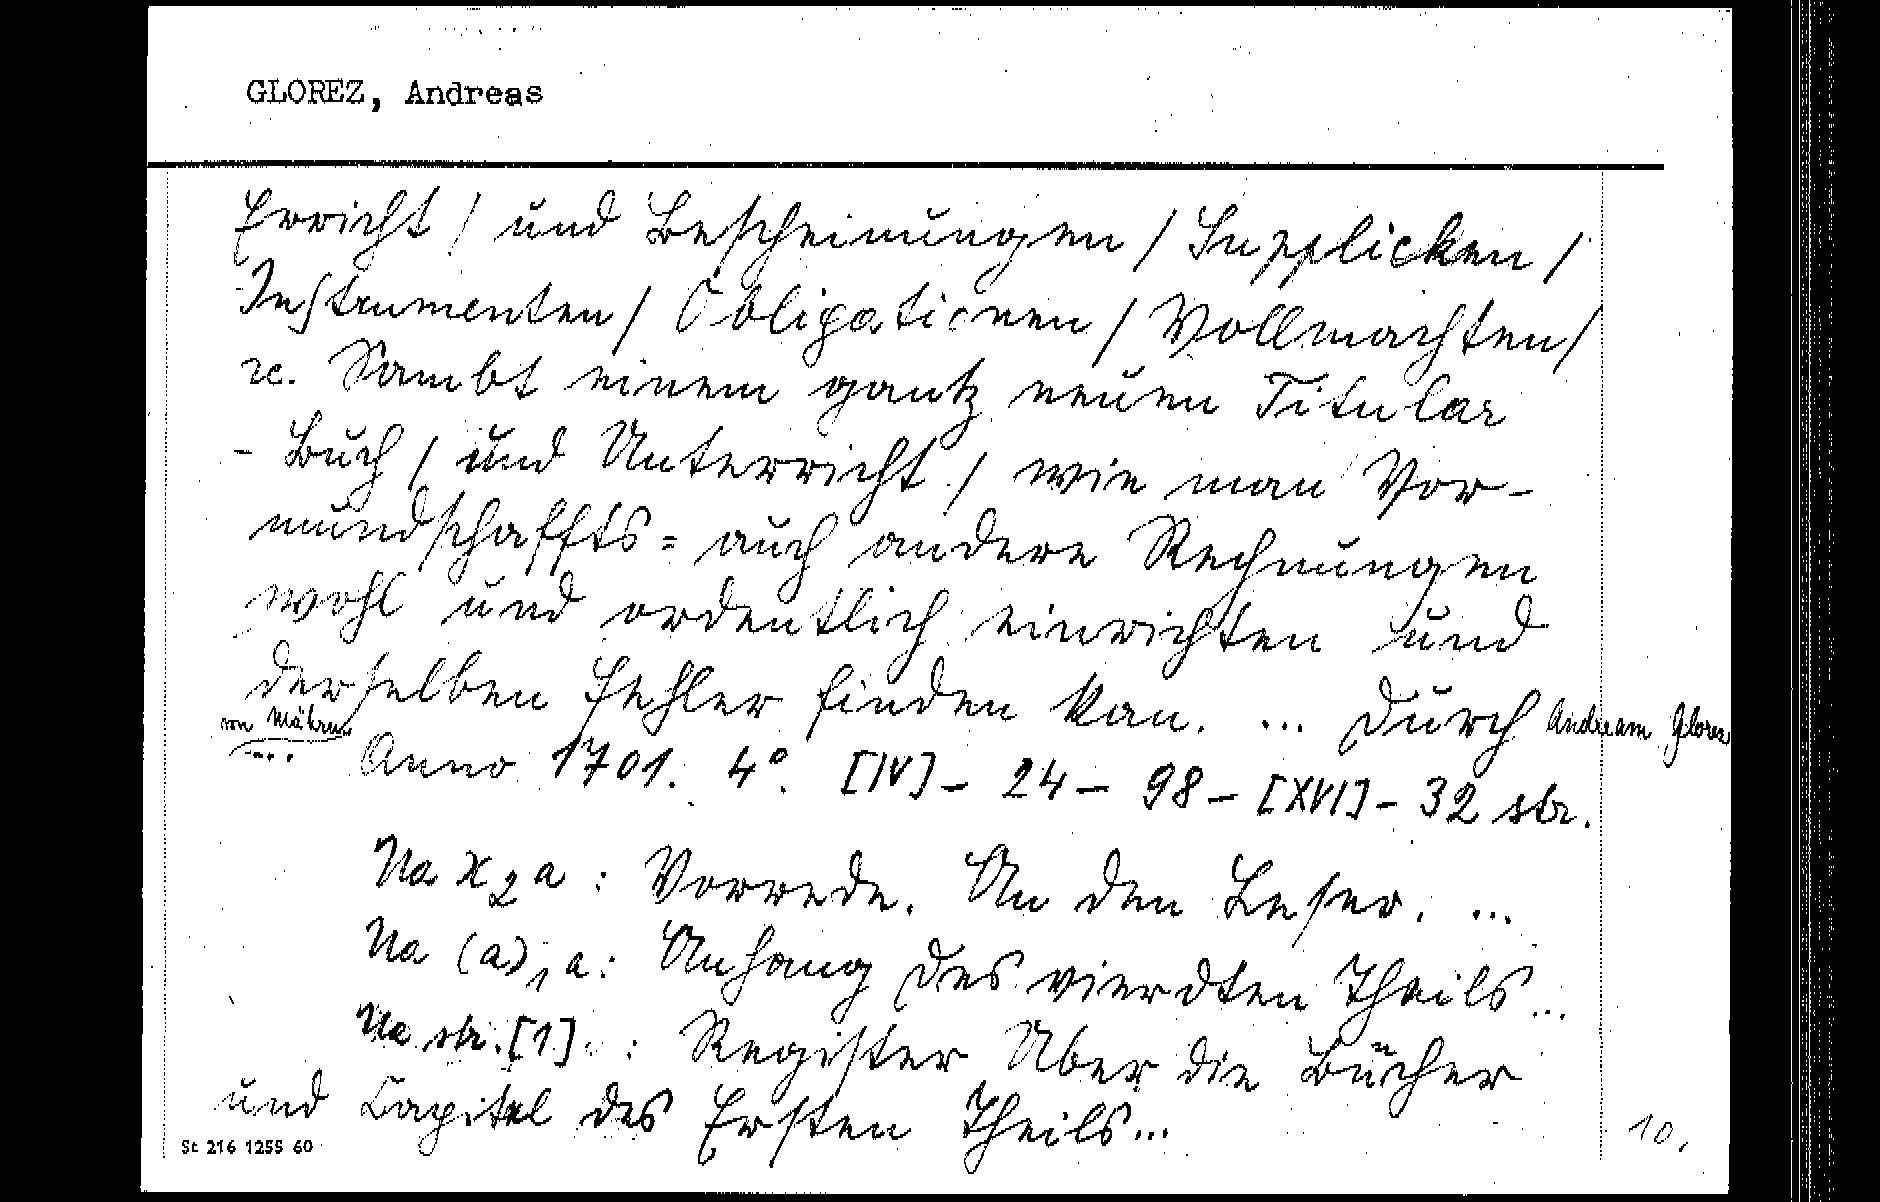 GLOREZ, Andreas
Erricht / und Bescheinungen / Supplicken /
Instrumenten / Obligationen / Vollmachten /
ꝛc. Sambt einem gantz neuen Titular
- Buch / und Unterricht / wie man Vor-
mundschaffts= auch andere Rechnungen
wohl und ordentlich einrichten und
derselben Fehler finden kan. ... Durch Andream Glorez
von Mähren
... Anno 1701. 4°. [IV] - 24 - 98 - [XVI] - 32 str.
Na X2a : Vorrede. An den Leser. ...
Na (a)1a : Anhang des vierdten Theils ...
Na str. [1] : Register Uber die Bücher
und Capitel des Ersten Theils ...
St 216 1255 60
10.